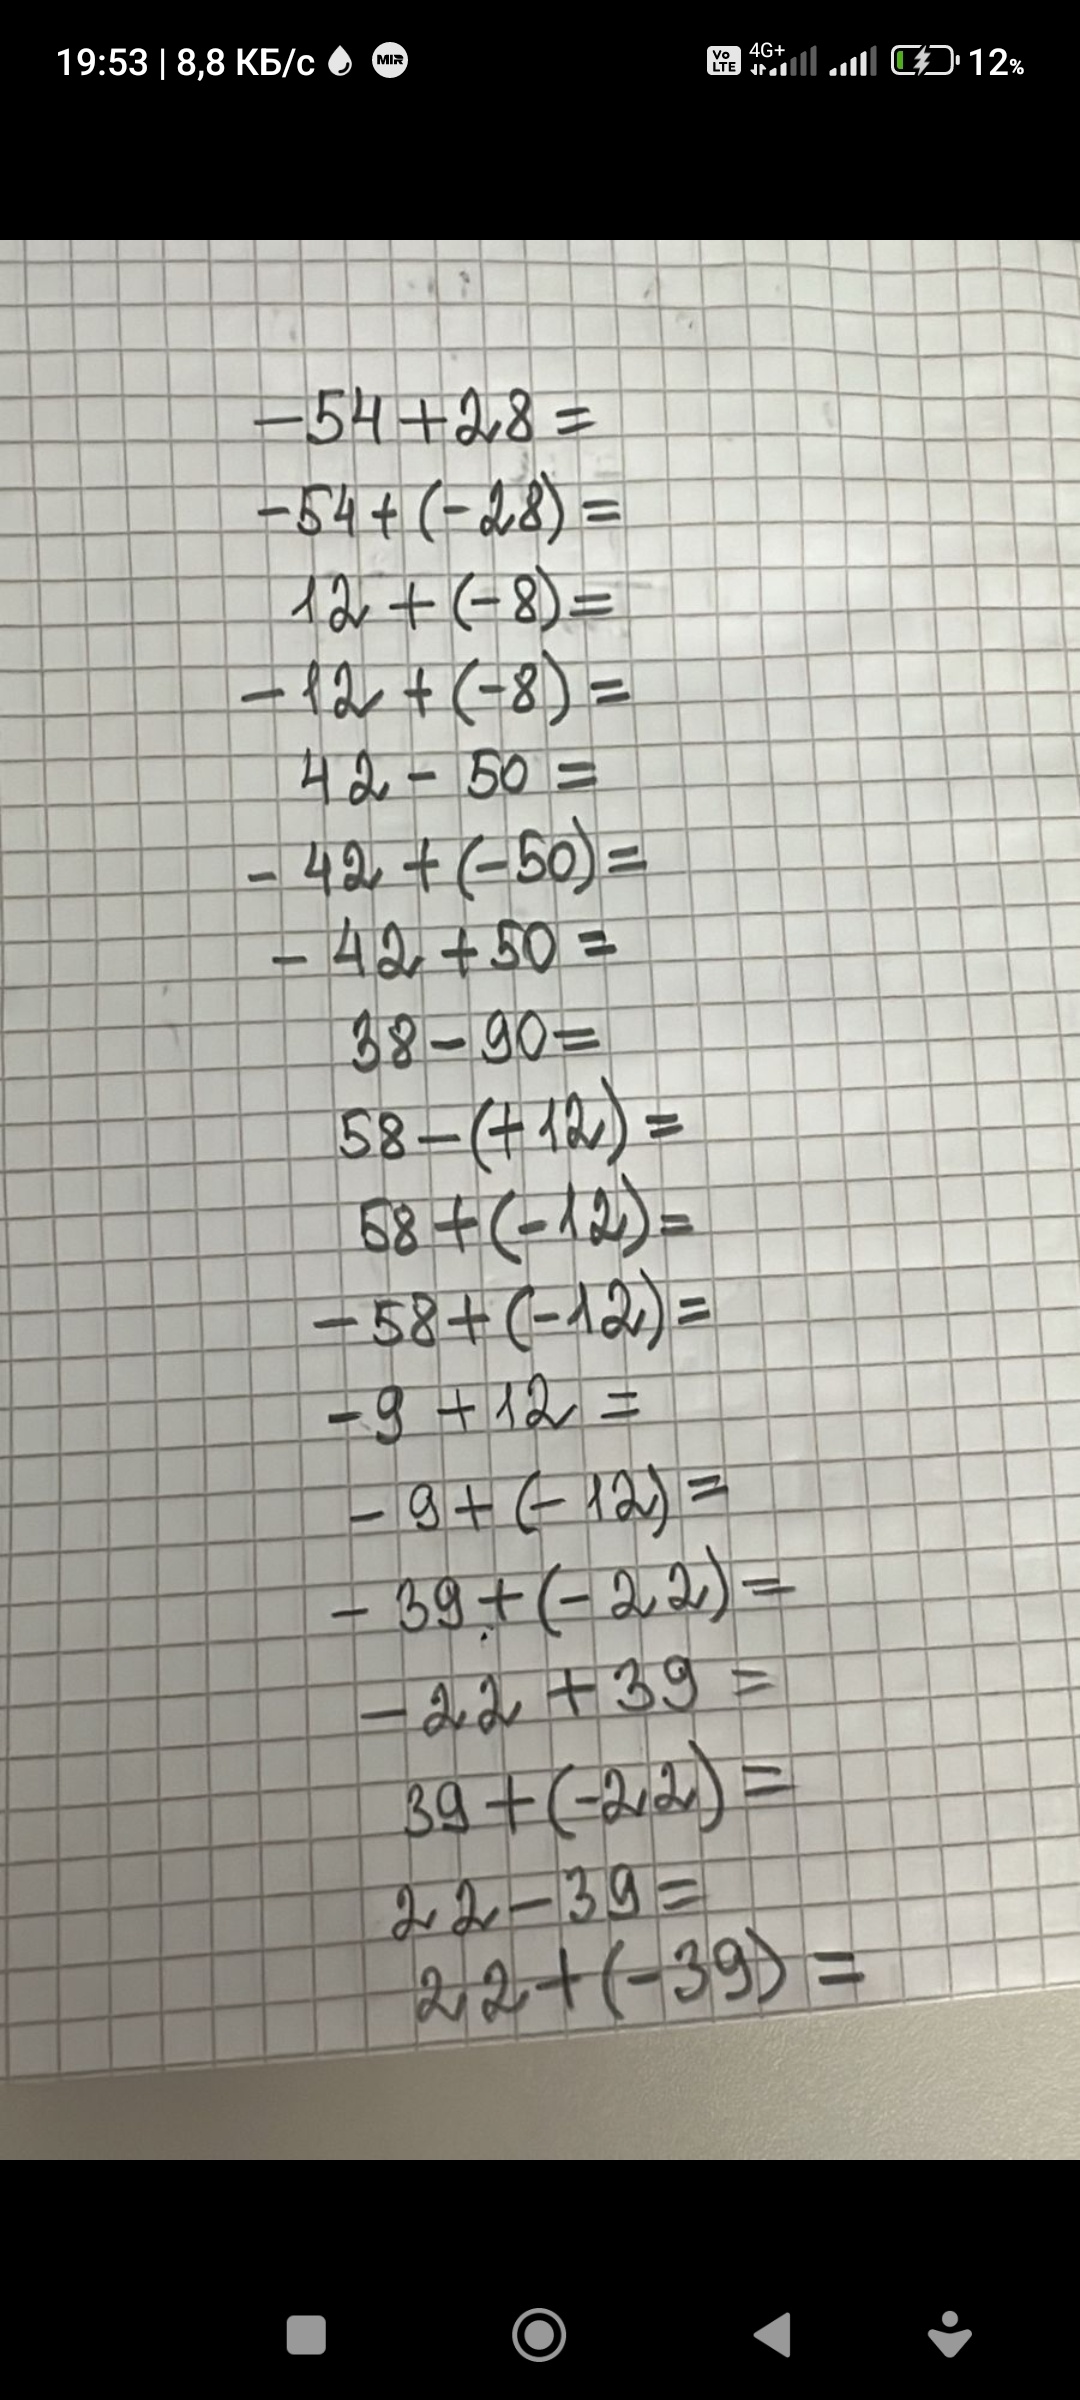 19:53 | 8,8 КБ/с MIR Vo LTE 4G+ 12%
-54+28=
-54+(-28)=
12+(-8)=
-12+(-8)=
42-50=
-42+(-50)=
-42+50=
38-90=
58-(+12)=
58+(-12)=
-58+(-12)=
-9+12=
-9+(-12)=
-39+(-22)=
-22+39=
39+(-22)=
22-39=
22+(-39)=